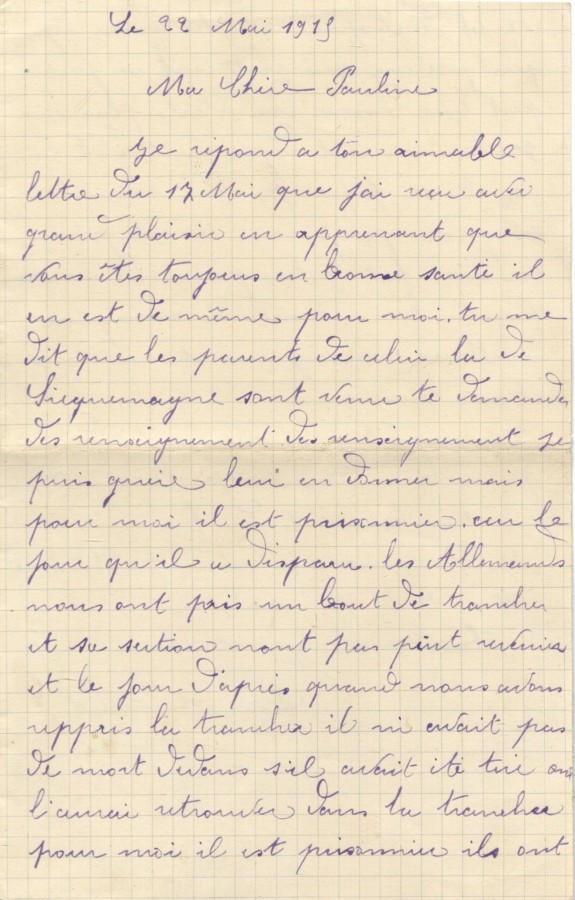 Le 22 Mai 1915
Ma Chère Pauline
Je répond a ton aimable
lettre du 17 Mai que jai reçu avec
grand plaisir en apprenant que
vous êtes toujours en bonne santé il
en est de même pour moi. tu me
dit que les parents de celui la de
Sicquemayne sont venu te demander
des renseignement des renseignement je
puis guère leur en donner mais
pour moi il est prisonnier. car le
jour qu'il a disparu. les Allemands
nous ont pris un bout de trancher
et sa section nont pas revenir
et le jour d'après quand nous avons
reppris la trancher il ni avait pas
de mort dedans s'il avait été tué on
l'aurai retrouver dans la trancher
pour moi il est prisonnier ils ont